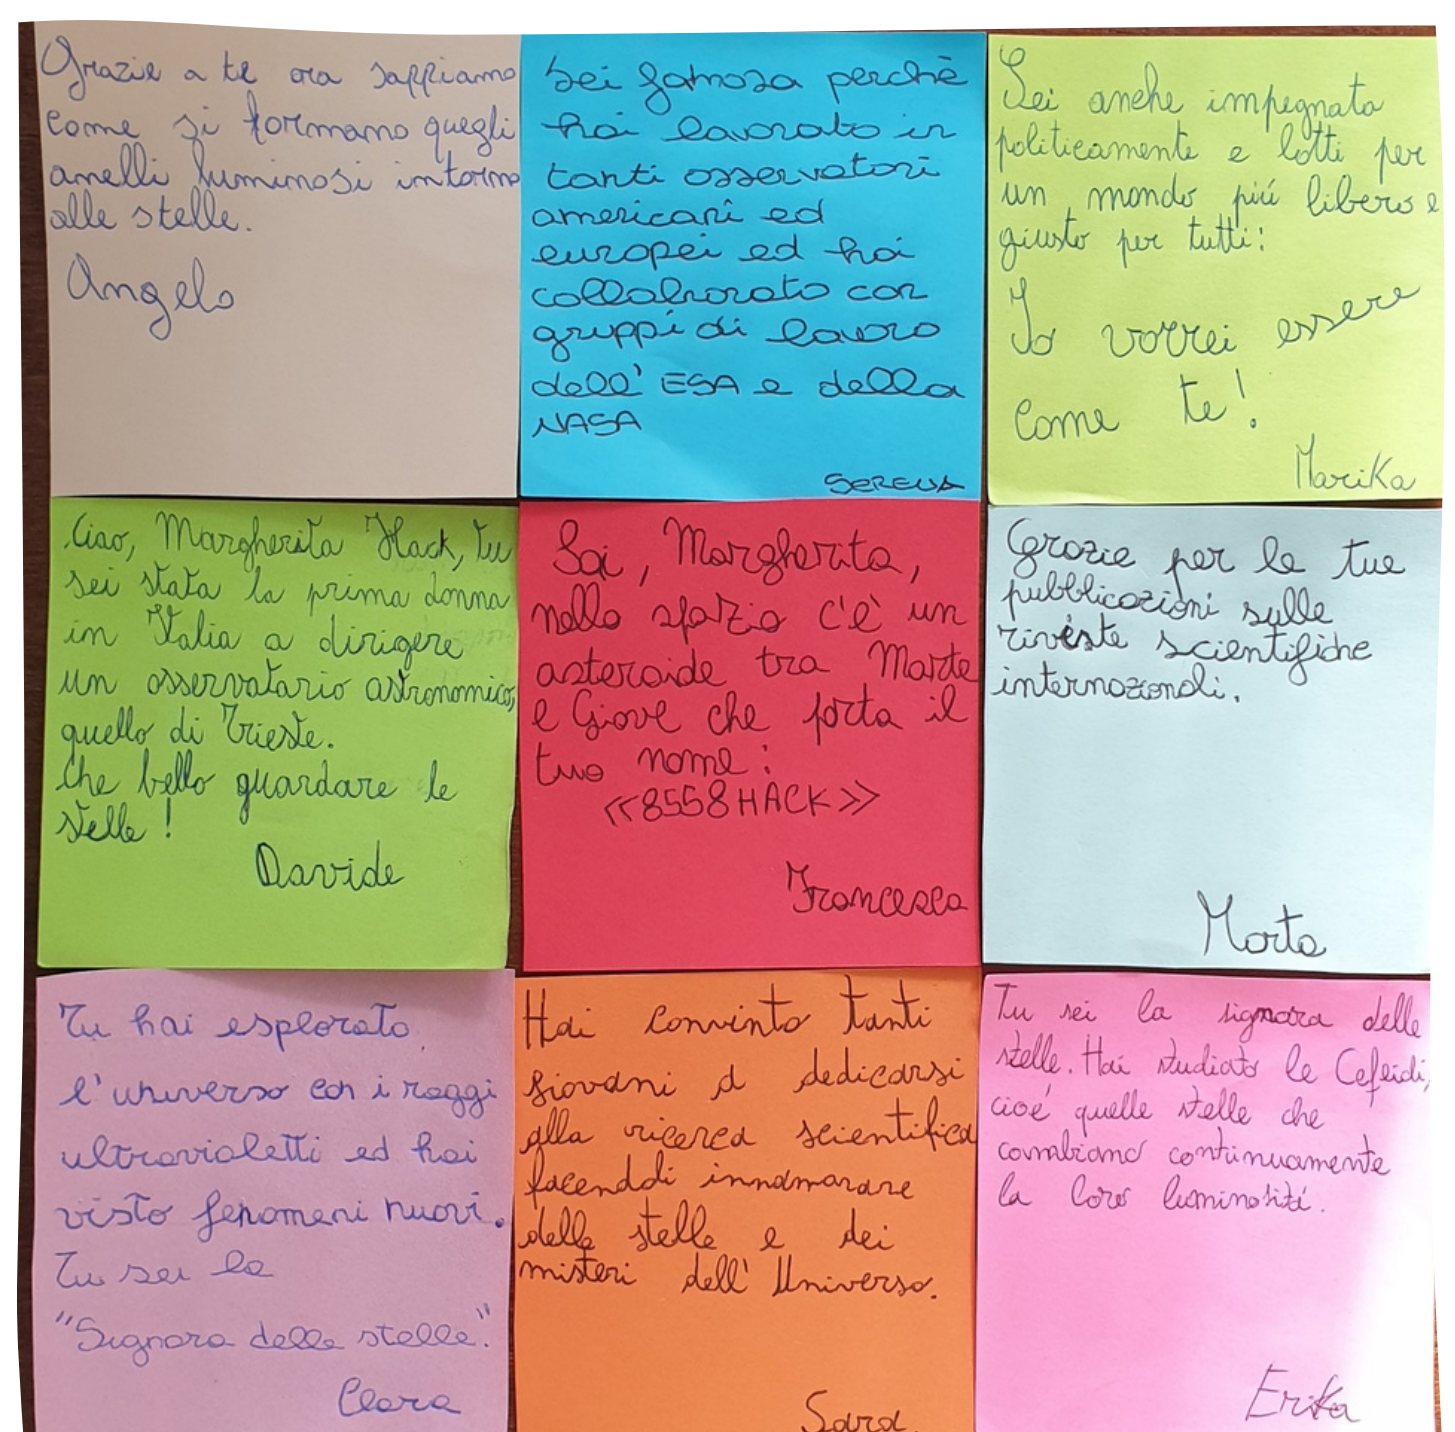 Grazie a te ora sappiamo
come si formano quegli
anelli luminosi intorno
alle stelle.
Angelo
Sei famosa perchè
hai lavorato in
tanti osservatori
americani ed
europei ed hai
collaborato con
gruppi di lavoro
dell' ESA e della
NASA
SERENA
Sei anche impegnata
politicamente e lotti per
un mondo piú libero e
giusto per tutti:
Io vorrei essere
come te!
Marika
Ciao, Margherita Hack, tu
sei stata la prima donna
in Italia a dirigere
un osservatorio astronomico,
quello di Trieste.
Che bello guardare le
stelle!
Davide
Sai, Margherita,
nello spazio c'è un
asteroide tra Marte
e Giove che porta il
tuo nome:
<<8558 HACK>>
Francesca
Grazie per le tue
pubblicazioni sulle
riviste scientifiche
internazionali.
Marta
Tu hai esplorato
l'universo con i raggi
ultravioletti ed hai
visto fenomeni nuovi.
Tu sei la
"Signora delle stelle".
Clara
Hai convinto tanti
giovani a dedicarsi
alla ricerca scientifica
facendoli innamorare
delle stelle e dei
misteri dell' Universo.
Sara
Tu sei la signora delle
stelle. Hai studiato le Cefeidi,
cioé quelle stelle che
cambiano continuamente
la loro luminositá.
Erika